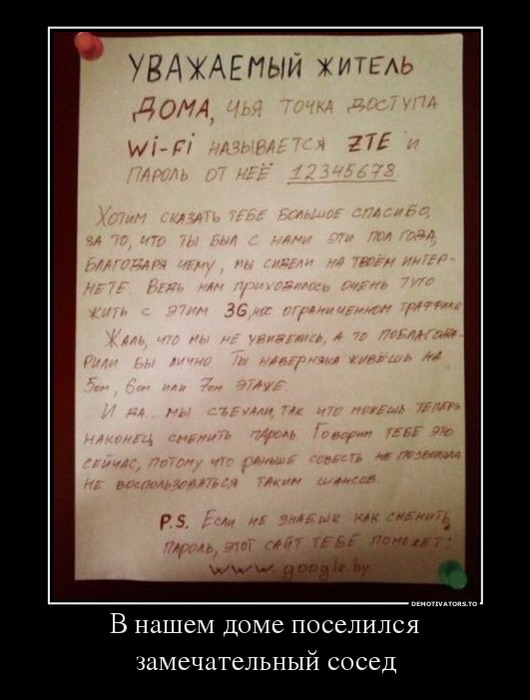 УВАЖАЕМЫЙ ЖИТЕЛЬ
ДОМА, ЧЬЯ ТОЧКА ДОСТУПА
Wi-Fi НАЗЫВАЕТСЯ ZTE И
ПАРОЛЬ ОТ НЕЁ 12345678
ХОТИМ СКАЗАТЬ ТЕБЕ БОЛЬШОЕ СПАСИБО,
ЗА ТО, ЧТО ТЫ БЫЛ С НАМИ ЭТИ ПОЛ ГОДА,
БЛАГОДАРЯ ЧЕМУ, МЫ СИДЕЛИ НА ТВОЁМ ИНТЕР-
НЕТЕ. ВЕДЬ НАМ ПРИХОДИЛОСЬ ОЧЕНЬ ТУГО
ЖИТЬ С ЭТИМ 3G, ОГРАНИЧЕННОМ ТРАФФИКЕ
ЖАЛЬ, ЧТО МЫ НЕ УВИДЕЛИСЬ, А ТО ПОБЛАГОДА-
РИЛИ БЫ ЛИЧНО. ТЫ НАВЕРНЯКА ЖИВЁШЬ НА
5ом, 6ом ИЛИ 7ом ЭТАЖЕ.
И ДА... МЫ СЪЕХАЛИ, ТАК ЧТО МОЖЕШЬ ТЕПЕРЬ
НАКОНЕЦ СМЕНИТЬ ПАРОЛЬ. ГОВОРИМ ТЕБЕ ЭТО
СЕЙЧАС, ПОТОМУ ЧТО РАНЬШЕ СОВЕСТЬ НЕ ПОЗВОЛЯЛА
НЕ ВОСПОЛЬЗОВАТЬСЯ ТАКИМ ШАНСОМ.
P.S. ЕСЛИ НЕ ЗНАЕШЬ КАК СМЕНИТЬ
ПАРОЛЬ, ЭТОТ САЙТ ТЕБЕ ПОМОЖЕТ:
www.google.by
DEMOTIVATORS.TO
В нашем доме поселился
замечательный сосед